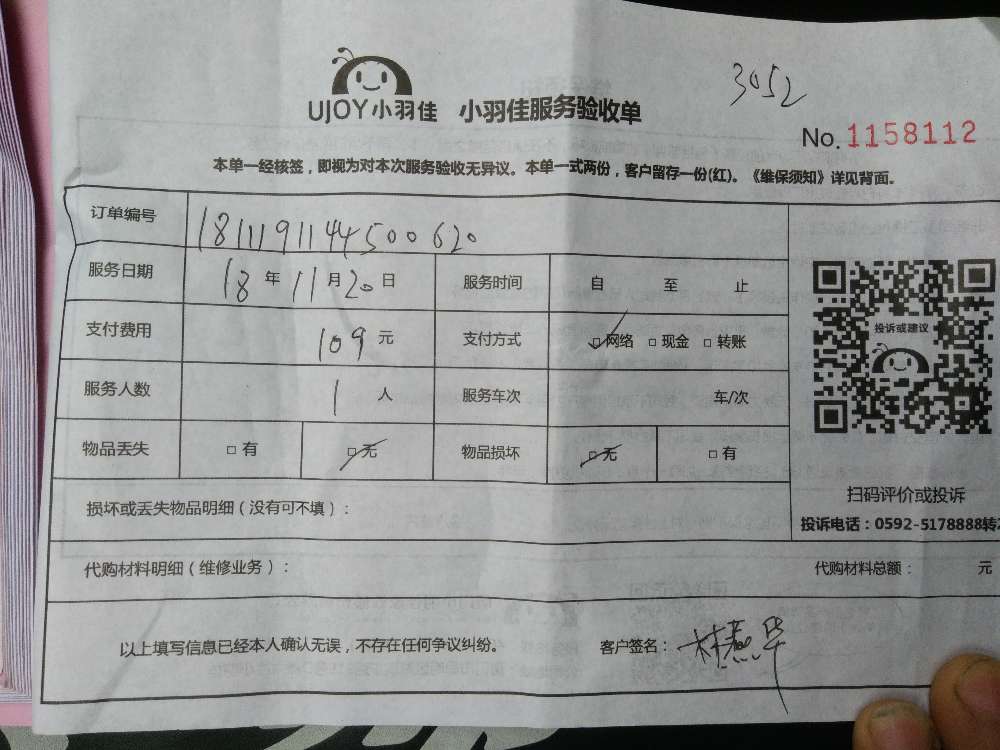 3052
UJOY小羽佳 小羽佳服务验收单
No. 1158112
本单一经核签，即视为对本次服务验收无异议。本单一式两份，客户留存一份(红)。《维保须知》详见背面。
订单编号 181119114450​0620
服务日期 18 年 11 月 20 日 服务时间 自 至 止
支付费用 109 元 支付方式 ☑网络 □现金 □转账
服务人数 1 人 服务车次 车/次
物品丢失 □有 ☑无 物品损坏 ☑无 □有
投诉或建议
扫码评价或投诉
投诉电话：0592-5178888转
损坏或丢失物品明细（没有可不填）：
代购材料明细（维修业务）： 代购材料总额： 元
以上填写信息已经本人确认无误，不存在任何争议纠纷。 客户签名：林